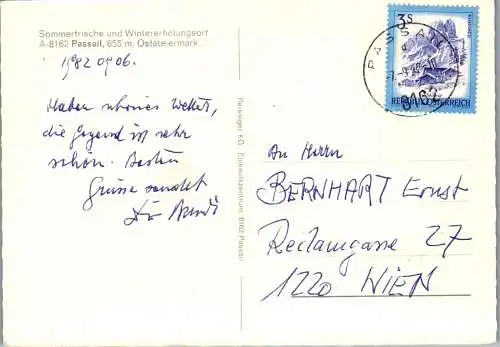 Sommerfrische und Wintererholungsort
A-8162 Passail, 655 m, Oststeiermark
1982 09 06.
Haben schönes Wetter,
die Gegend ist sehr
schön. Besten
Grüsse sendet
Passinger KG Einkaufszentrum, 8162 Passail
3S
REPUBLIK ÖSTERREICH
PASSAIL
8162
An Herrn
BERNHART Ernst
Reclamgasse 27
1220 WIEN